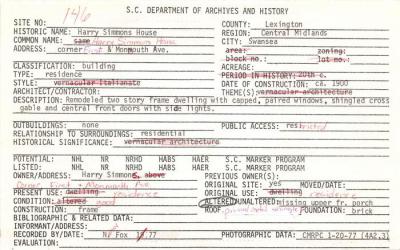 146
S.C. DEPARTMENT OF ARCHIVES AND HISTORY
SITE NO: COUNTY: Lexington
HISTORIC NAME: Harry Simmons House REGION: Central Midlands
COMMON NAME: same Harry Simmons House CITY: Swansea
ADDRESS: corner First & Monmouth Ave. area: zoning:
block no.: lot no.:
CLASSIFICATION: building ACREAGE:
TYPE: residence PERIOD IN HISTORY: 20th c.
STYLE: vernacular Italianate DATE OF CONSTRUCTION: ca. 1900
ARCHITECT/CONTRACTOR: THEME(S): vernacular architecture
DESCRIPTION: Remodeled two story frame dwelling with capped, paired windows, shingled cross
gable and central front doors with side lights.
OUTBUILDINGS: none PUBLIC ACCESS: restricted
RELATIONSHIP TO SURROUNDINGS: residential
HISTORICAL SIGNIFICANCE: vernacular architecture
POTENTIAL: NHL NR NRHD HABS HAER S.C. MARKER PROGRAM
LISTED: NHL NR NRHD HABS HAER S.C. MARKER PROGRAM
OWNER/ADDRESS: Harry Simmons, above PREVIOUS OWNER(S):
Corner First & Monmouth Ave. ORIGINAL SITE: yes MOVED/DATE:
PRESENT USE: dwelling residence ORIGINAL USE: dwelling residence
CONDITION: altered good ALTERED/UNALTERED: missing upper fr. porch
CONSTRUCTION: frame ROOF: FOUNDATION: brick
BIBLIOGRAPHIC & RELATED DATA:
INFORMANT/ADDRESS:
RECORDED BY/DATE: N. Fox 77 PHOTOGRAPHIC DATA: CMRPC 1-20-77 (4A2.3)
EVALUATION: